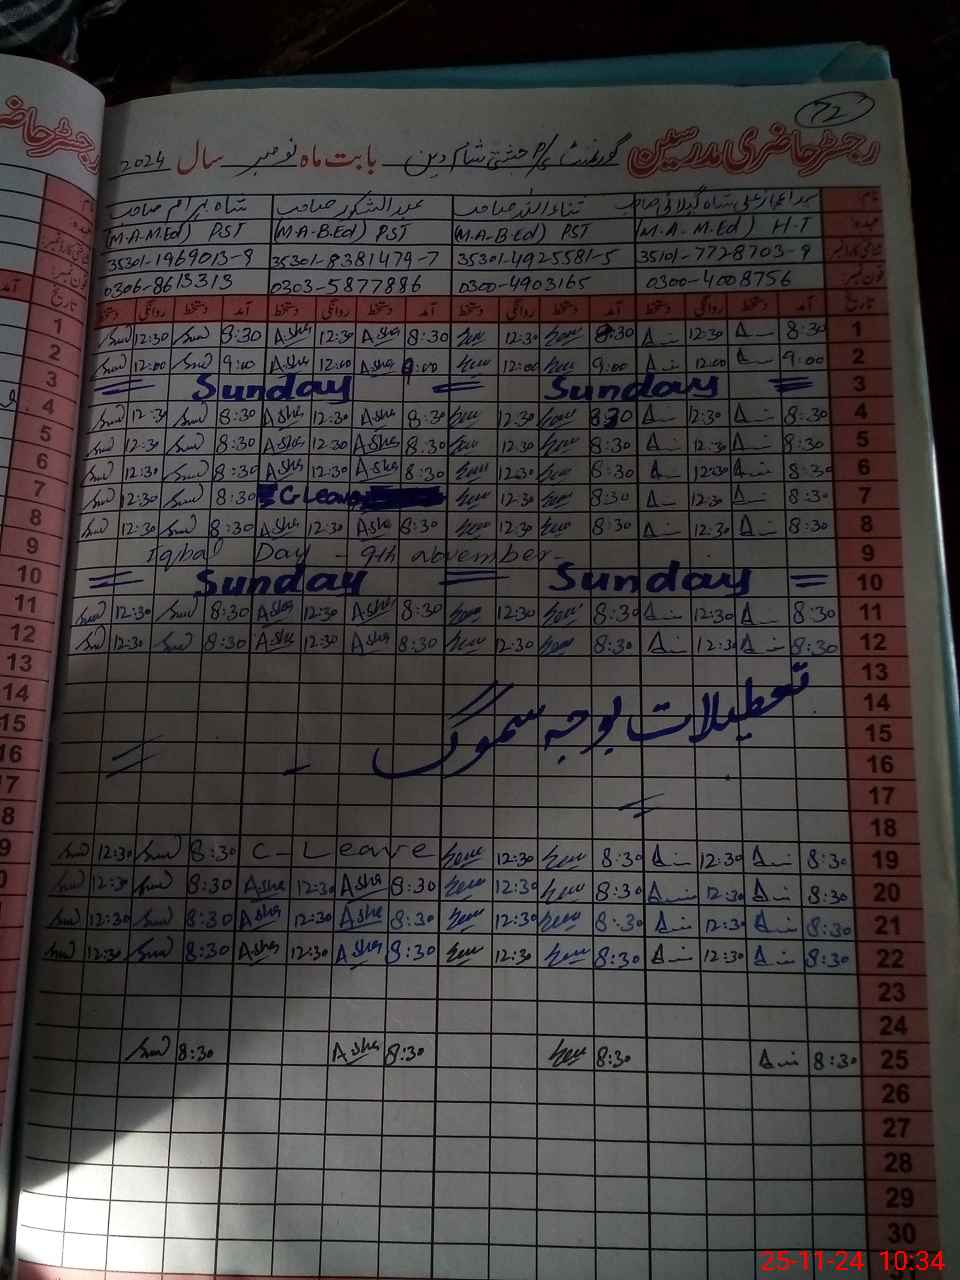 72
رجسٹر حاضری مدرسین گورنمنٹ چشتی شام دین بابت ماہ نومبر سال 2024
نام شاہ گیلانی صاحب ثناء اللہ صاحب عبدالشکور صاحب شاہ بہرام صاحب
عہدہ (M.A-M.Ed) H.T (M.A-B.Ed) PST (M.A-B.Ed) PST (M.A-M.Ed) PST
شناختی کارڈ نمبر 35101-7728703-9 35301-4925581-5 35301-8381479-7 35301-1969013-9
فون نمبر: 0300-4008756 0300-4903165 0303-5877886 0306-8613313
تاریخ آمد دستخط روانگی دستخط آمد دستخط روانگی دستخط آمد دستخط روانگی دستخط آمد دستخط روانگی دستخط
1 8:30 12:30 8:30 12:30 8:30 Asha 12:30 Asha 8:30 12:30
2 9:00 12:00 9:00 12:00 9:00 Asha 12:00 Asha 9:00 12:00
3 = Sunday = Sunday =
4 8:30 12:30 8:30 12:30 8:30 Asha 12:30 Asha 8:30 12:30
5 8:30 12:30 8:30 12:30 8:30 Asha 12:30 Asha 8:30 12:30
6 8:30 12:30 8:30 12:30 8:30 Asha 12:30 Asha 8:30 12:30
7 8:30 12:30 8:30 12:30 C Leave 8:30 12:30
8 8:30 12:30 8:30 12:30 8:30 Asha 12:30 Asha 8:30 12:30
9 Iqbal Day - 9th november -
10 = Sunday = Sunday =
11 8:30 12:30 8:30 12:30 8:30 Asha 12:30 Asha 8:30 12:30
12 8:30 12:30 8:30 12:30 8:30 Asha 12:30 Asha 8:30 12:30
13
14
تعطیلات بوجہ سموگ -
15
16
17
18
19 8:30 12:30 8:30 12:30 C - Leave 8:30 12:30
20 8:30 12:30 8:30 12:30 8:30 Asha 12:30 Asha 8:30 12:30
21 8:30 12:30 8:30 12:30 8:30 Asha 12:30 Asha 8:30 12:30
22 8:30 12:30 8:30 12:30 8:30 Asha 12:30 Asha 8:30 12:30
23
24
25 8:30 8:30 8:30 Asha 8:30
26
27
28
29
30
25-11-24 10:34